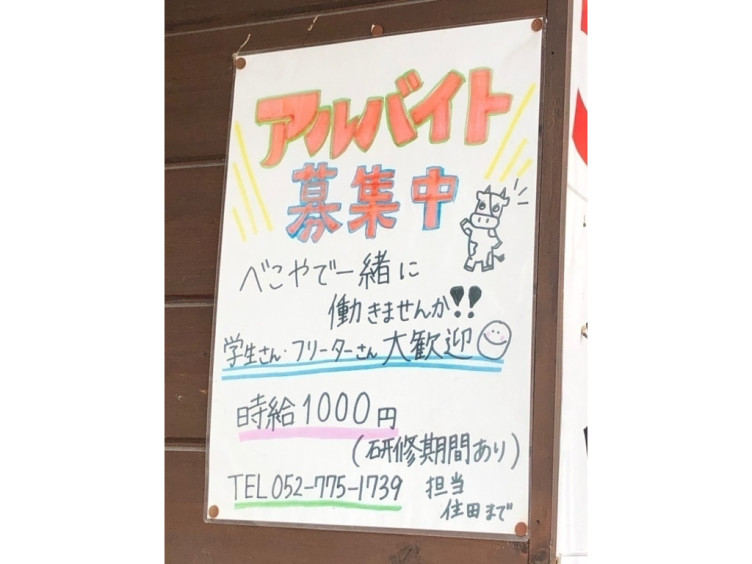 アルバイト
募集中
べこやで一緒に
働きませんか!!
学生さん・フリーターさん大歓迎
時給1000円
(研修期間あり)
TEL 052-775-1739 担当
住田まで